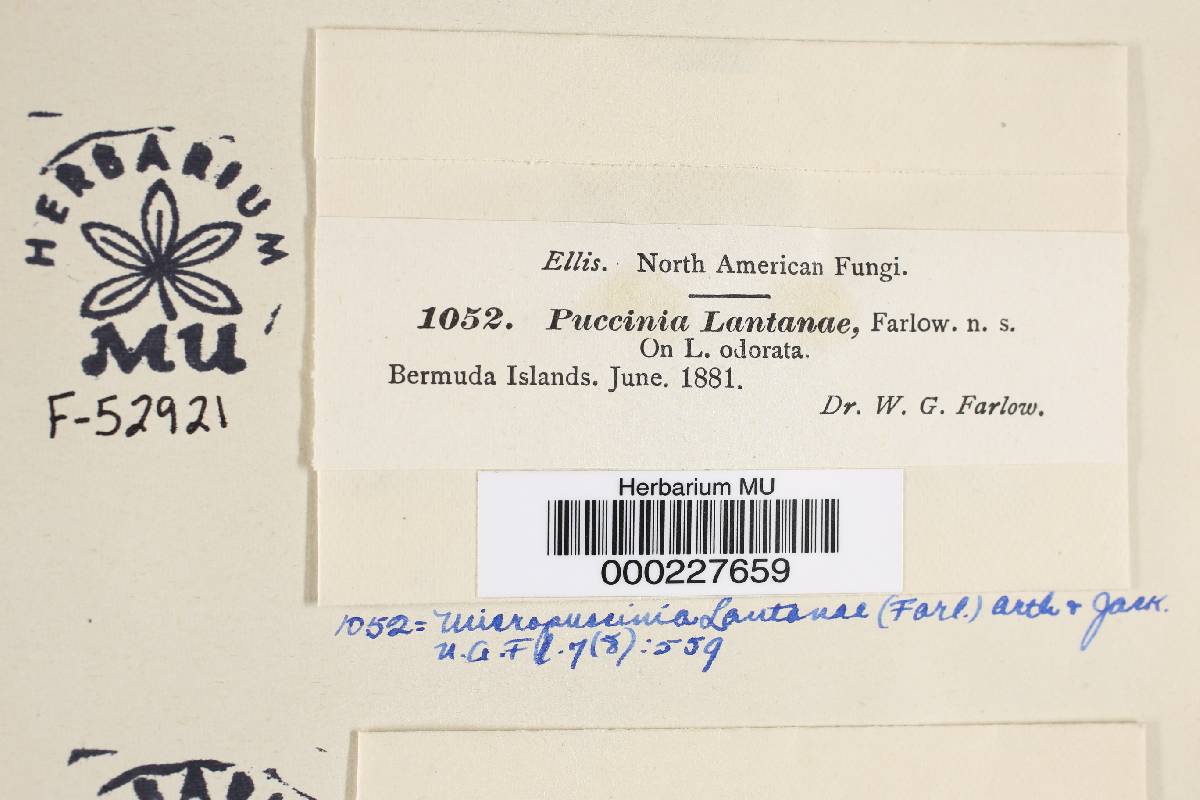 HERBARIUM
MU
F-52921
Ellis. North American Fungi.
1052. Puccinia Lantanae, Farlow. n. s.
On L. odorata.
Bermuda Islands. June. 1881.
Dr. W. G. Farlow.
Herbarium MU
000227659
1052 = Micropuccinia Lantanae (Farl.) Arth & Jack.
N.A.Fl. 7(8):559